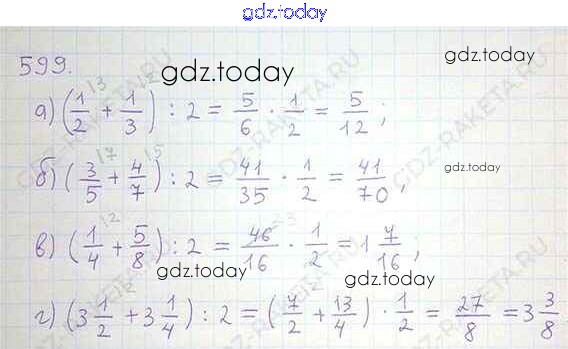 gdz.today
599.
gdz.today
а) (1/2 + 1/3) : 2 = 5/6 · 1/2 = 5/12 ;
б) (3/5 + 4/7) : 2 = 41/35 · 1/2 = 41/70 ,
gdz.today
в) (1/4 + 5/8) : 2 = 46/16 · 1/2 = 1 7/16 ;
gdz.today
gdz.today
г) (3 1/2 + 3 1/4) : 2 = (7/2 + 13/4) · 1/2 = 27/8 = 3 3/8